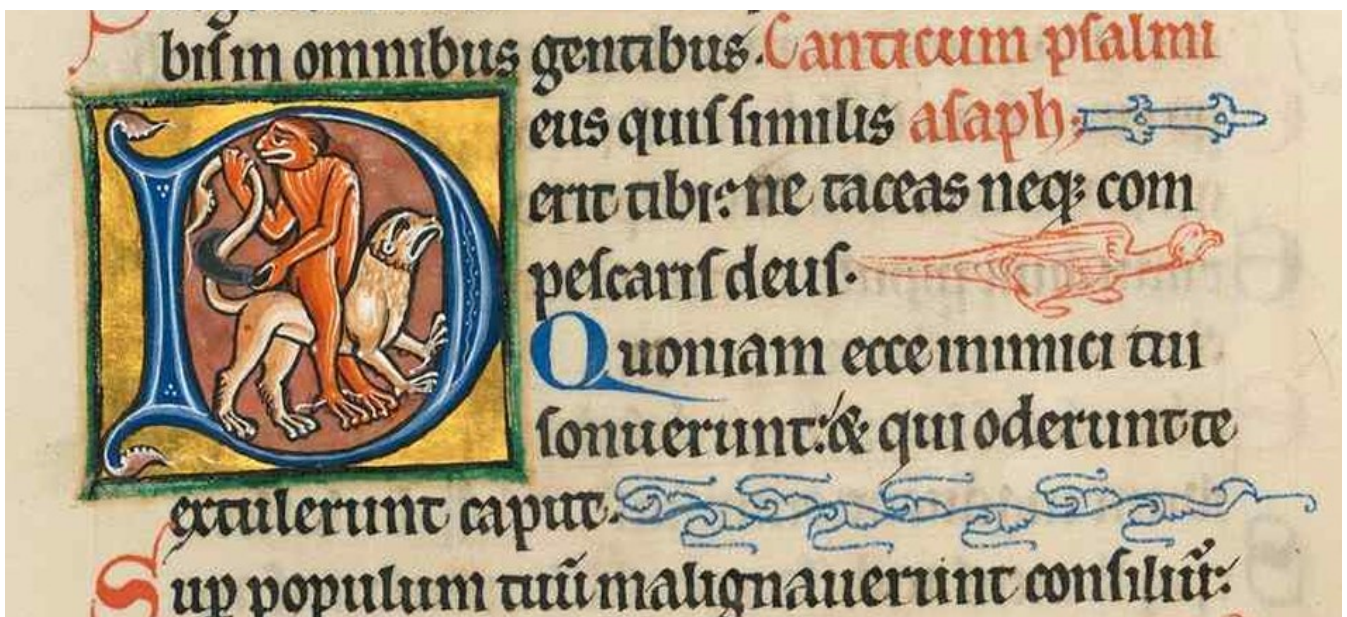 biſ in omnibus gentibus. Canticum pſalmi
Deus quiſ ſimilis aſaph.
erit tibi: ne taceas neq; com
peſcariſ deuſ.
Quoniam ecce inimici tui
ſonuerunt: & qui oderunt te
extulerunt caput.
Sup populum tuū malignauerunt conſiliū: